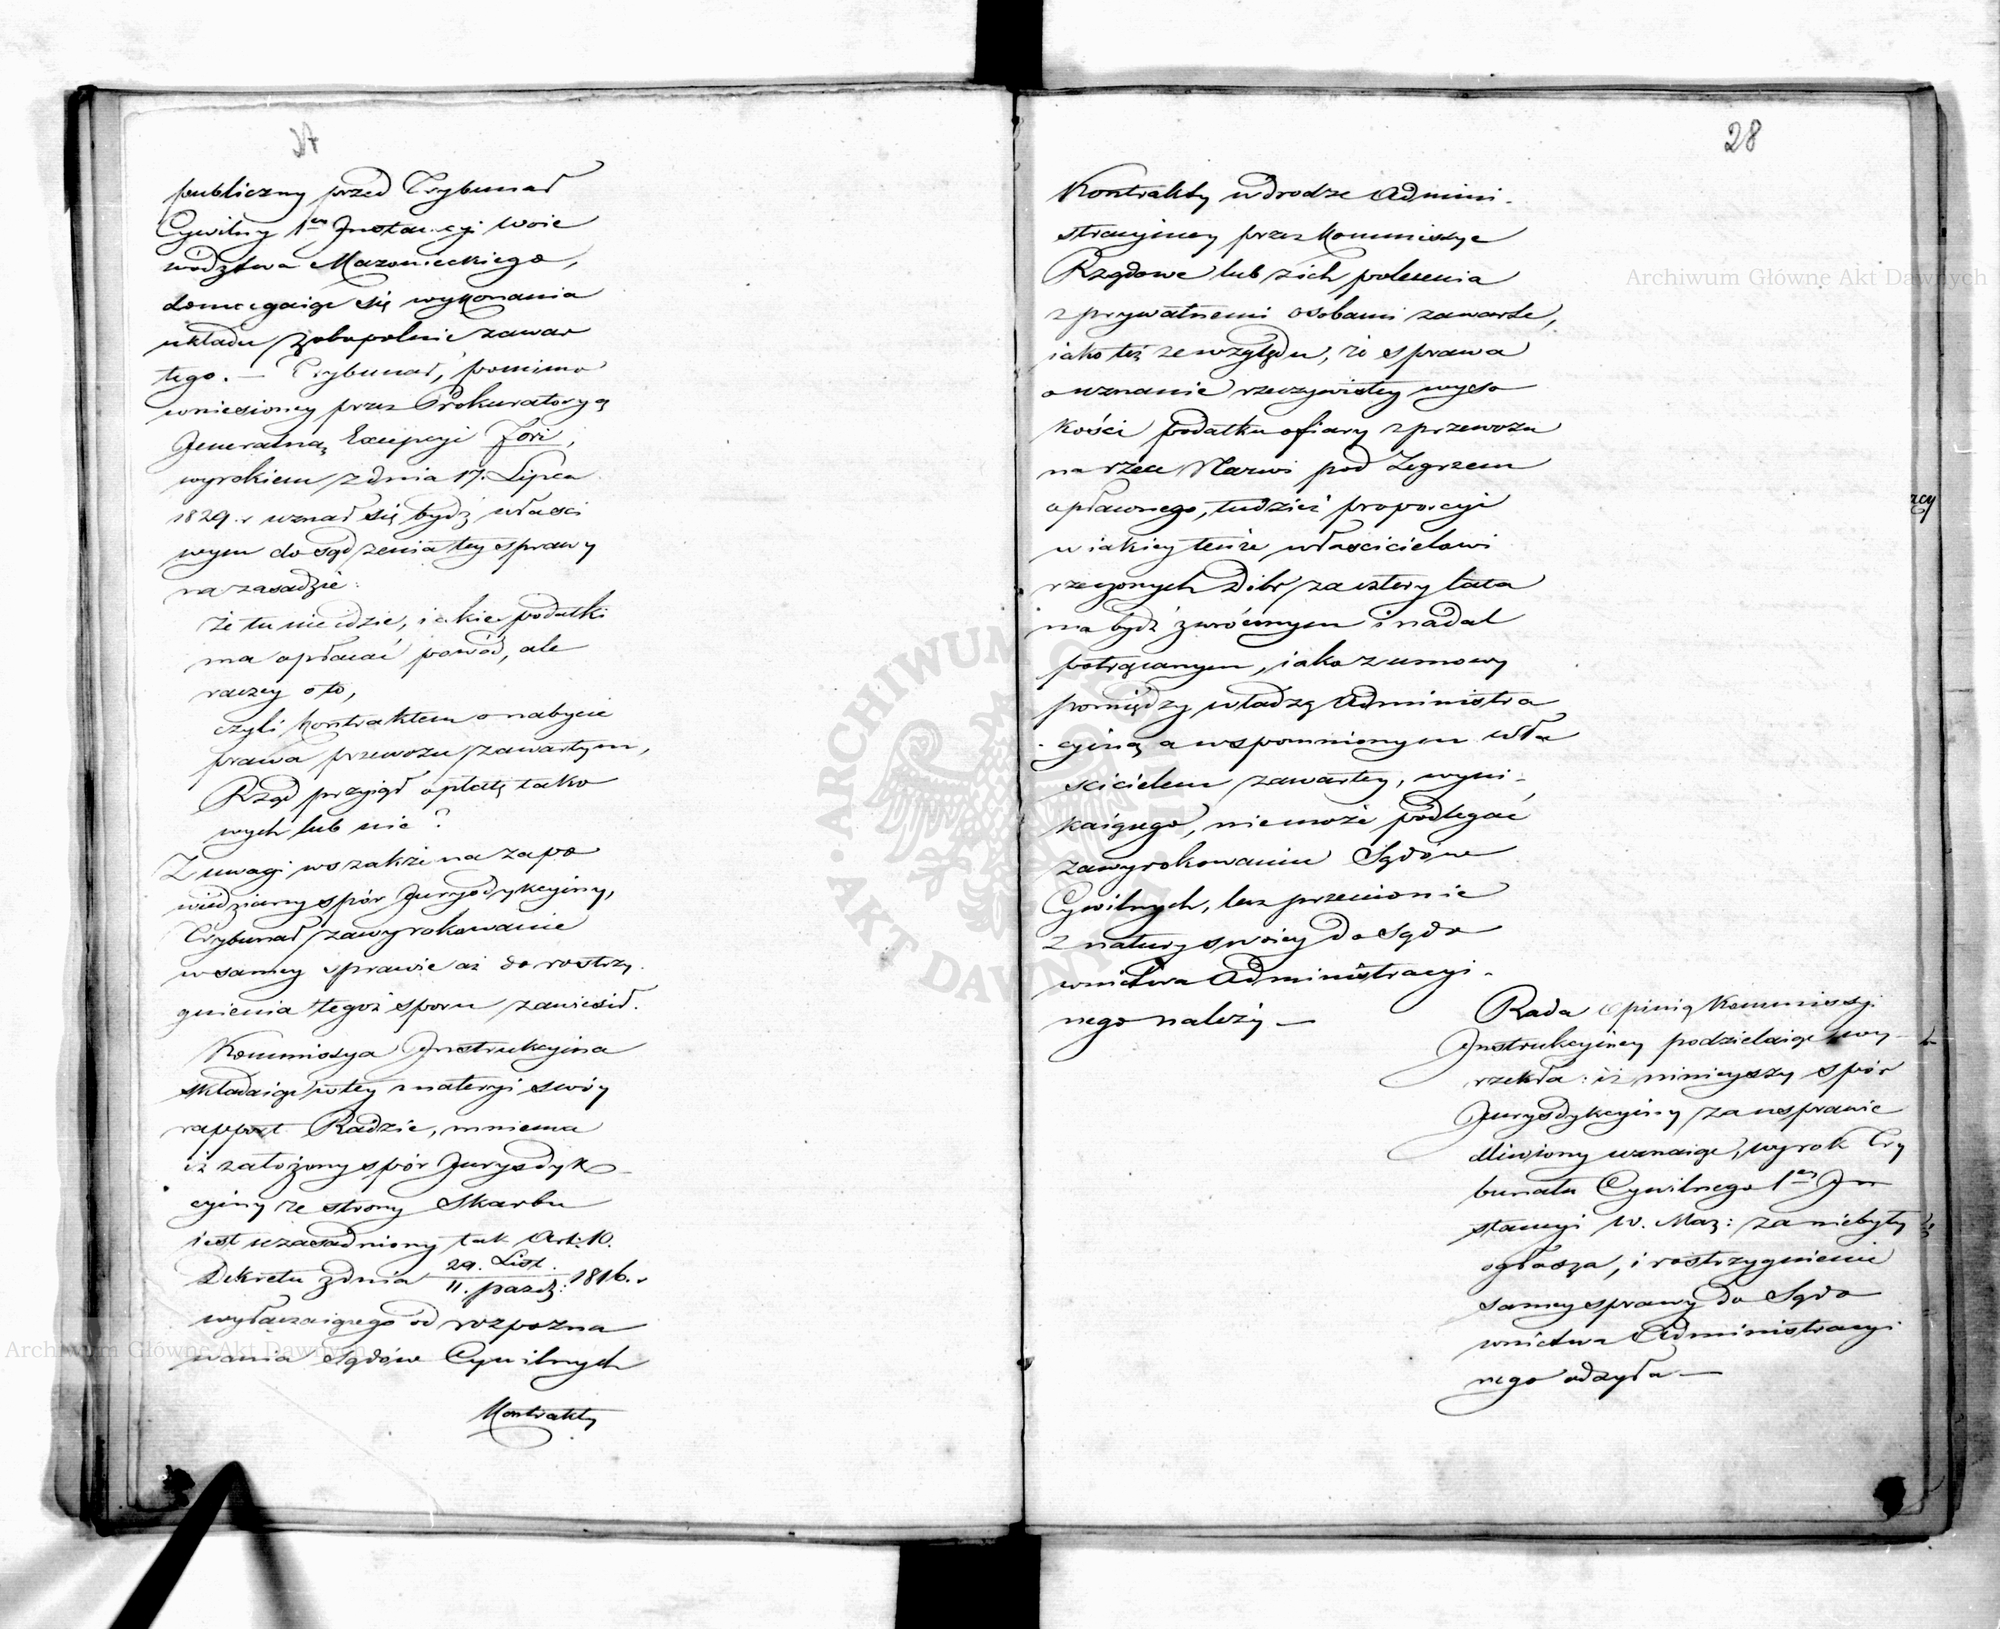 publiczny przed Trybunał
Cywilny 1ey Instancyi Woie
wództwa Mazowieckiego,
domagaiąc się wykonania
układu zobopólnie zawar
tego. — Trybunał, pomimo
wniesioney przez Prokuratoryą
Jeneralną Excepcyi Fori,
wyrokiem z dnia 17. Lipca
1829. r uznał się bydź właści
wym do sądzenia tey sprawy
na zasadzie:
że tu nie idzie, iakie podatki
ma opłacać powód, ale
raczey o to,
czyli kontraktem o nabycie
prawa przewozu zawartym,
Rząd przyiął opłatę tako
wych lub nie?
Z uwagi wszakże na zapo
wiedziany spór Jurysdykcyiny,
Trybunał zawyrokowanie
w samey sprawie aż do rostrzy
gnienia tegoż sporu zawiesił.
Kommissya Instrukcyina
składaiąc w tey materyi swóy
rapport Radzie, mniema
iż założony spór Jurysdyk
cyiny ze strony Skarbu
iest uzasadniony tak Art: 10.
Dekretu z dnia 29. List. / 11. paźdz: 1816. r
wyłączaiącego od rozpozna
wania Sądów Cywilnych
Kontrakty
28
Kontrakty w drodze Admini-
stracyiney przez Kommissye
Rządowe lub z ich polecenia
z prywatnemi osobami zawarte,
iako też ze względu, że sprawa
o uznanie rzeczywistey wyso
kości podatku ofiary z przewozu
na rzece Narwi pod Zegrzem
opłacanego, tudzież proporcyi
w iakiey tenże właścicielowi
rzeczonych Dóbr za cztery lata
ma bydź zwróconym i nadal
potrącanym, iako z umowy
pomiędzy władzą Administra
cyiną a wspomnionym wła
ścicielem zawartey, wyni-
kaiącego, nie może podlegać
zawyrokowaniu Sądów
Cywilnych, lecz przeciwnie
z natury swoiey do Sądo
wnictwa Administracyi-
nego należy —
Rada opinią Kommissyi
Instrukcyiney podzielaiąc wy-
rzekła: iż ninieyszy spór
Jurysdykcyiny za usprawie
dliwiony uznaiąc, wyrok Try
bunału Cywilnego 1ey In
stancyi W. Maz: za niebyły
ogłasza, i rostrzygnienie
samey sprawy do Sądo
wnictwa Administracyi
nego odsyła —
Archiwum Główne Akt Dawnych
Archiwum Główne Akt Dawnych
ARCHIWUM GŁÓWNE AKT DAWNYCH